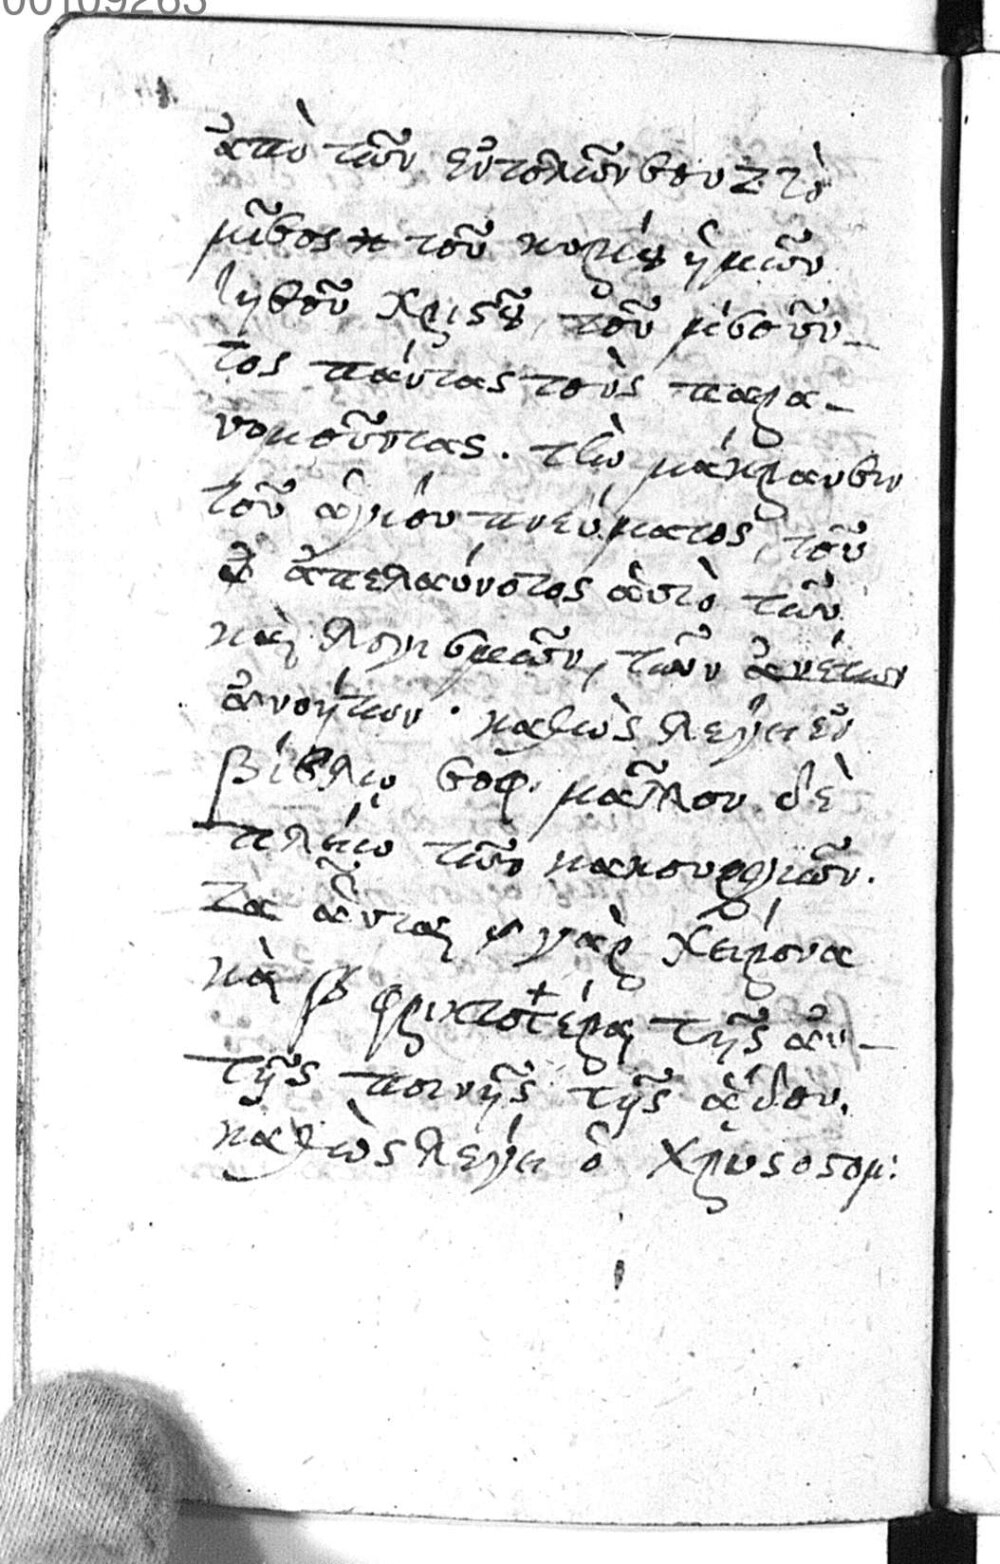 00109263
ἀπὸ τῶν ἐντολῶν σου ζ τὸ
μῖσος η τοῦ κυρίου ἡμῶν
Ἰησοῦ Χριστοῦ, τοῦ μισοῦν-
τος πάντας τοὺς παρα-
νομοῦντας. τὴν μάκρανσιν
τοῦ ἁγίου πνεύματος, τοῦ
ἀπελαύνοτος ἀπὸ τῶν
καὶ λογισμῶν, τῶν
ἀνοήτων · καθὼς λέγει ἐν
βίβλῳ σοφ. μᾶλλον δὲ
πλείω τῶν κακουργιῶν.
ἅυται γὰρ χείρονα
καὶ β φρικτοτέρα τῆς ἀυ-
τῆς ποινῆς τῆς ἅδου.
καθὼς λέγει ὁ Χρυσοστομ: